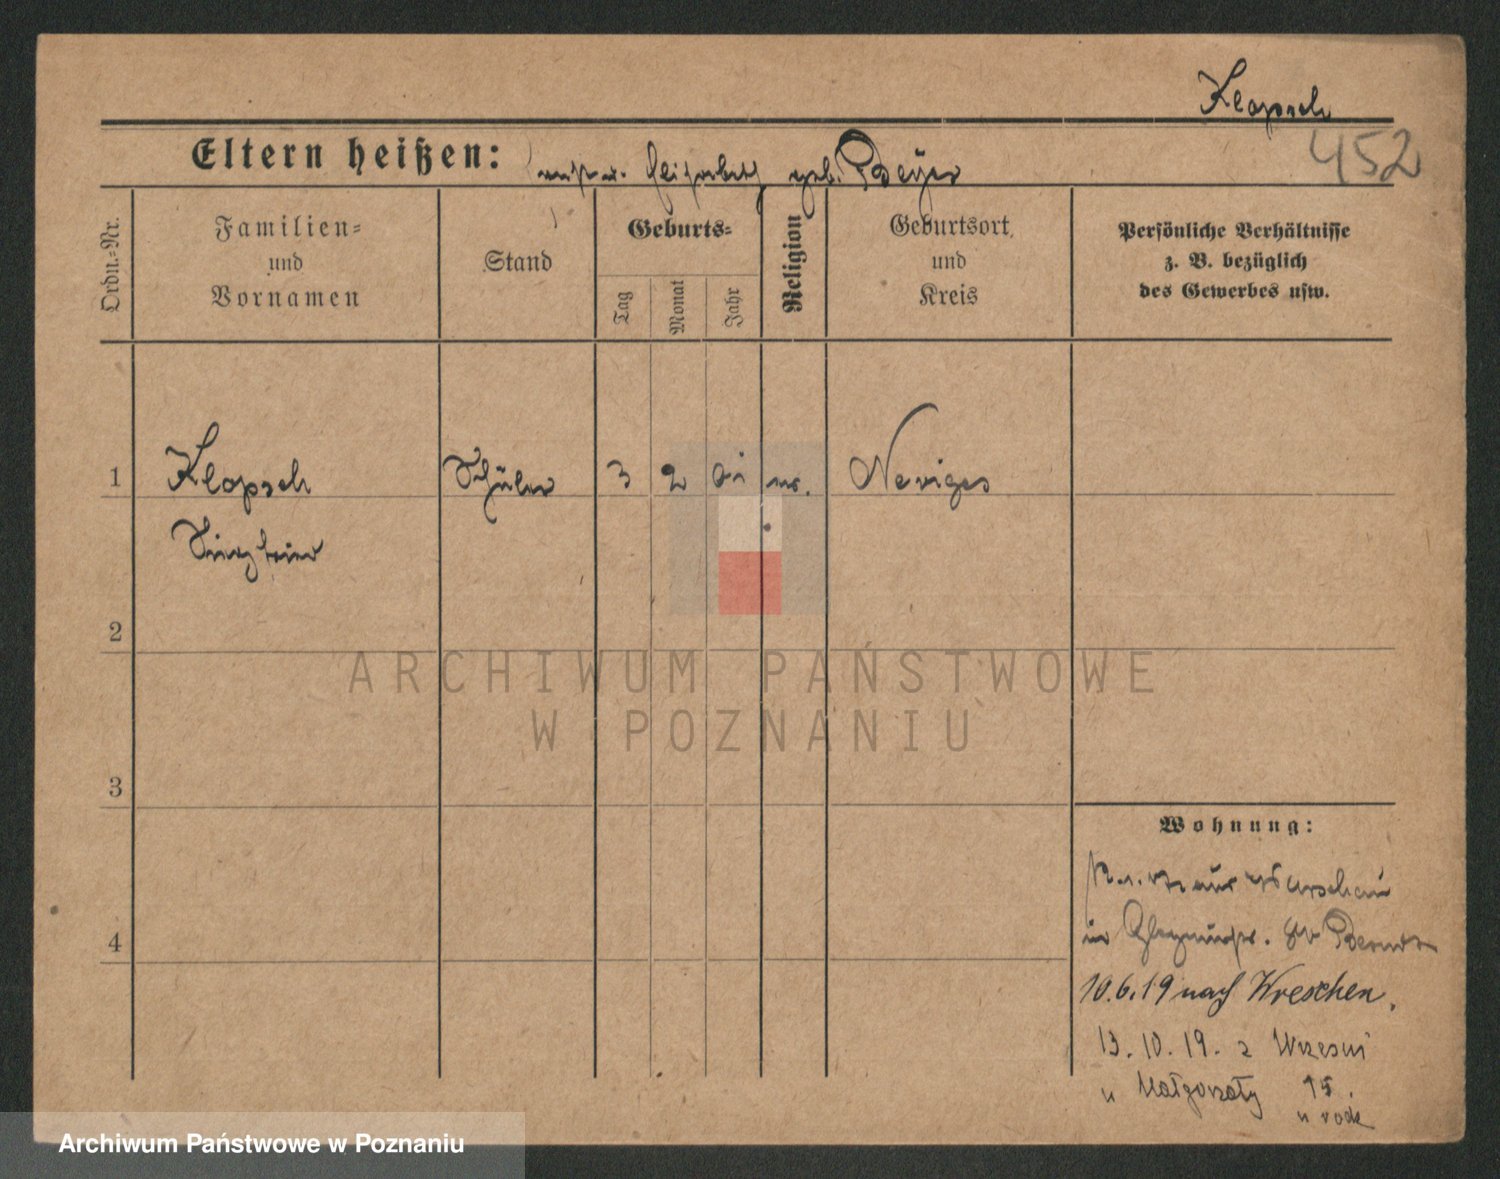 Klopsch
452
Eltern heißen: geb. Beyer
Ordn.-Nr.
Familien-
und
Vornamen
Stand
Geburts-
Tag
Monat
Jahr
Religion
Geburtsort
und
Kreis
Persönliche Verhältnisse
z. B. bezüglich
des Gewerbes usw.
1 Klopsch Schüler 3 2 Neviges
Siegfried
2
3
4
Wohnung:
aus Warschau
10.6.19 nach Wreschen.
13.10.19. z Wrześni
u Małgorzaty 15.
ARCHIWUM PAŃSTWOWE
W POZNANIU
Archiwum Państwowe w Poznaniu